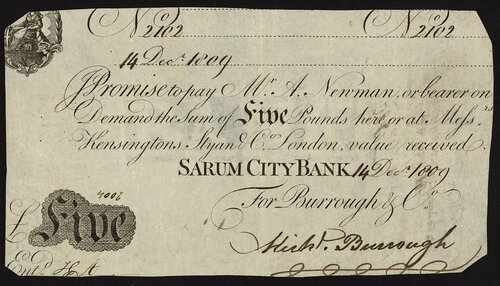 No 2102 No 2102
14 Decr. 1809
I Promise to pay Mr. A. Newman, or bearer on
Demand the Sum of Five Pounds here or at Messrs.
Kensingtons Styan & Co. London, value received.
SARUM CITY BANK 14 Decr. 1809
For Burrough & Co.
£ Five
Entd. H A
Michl. Burrough